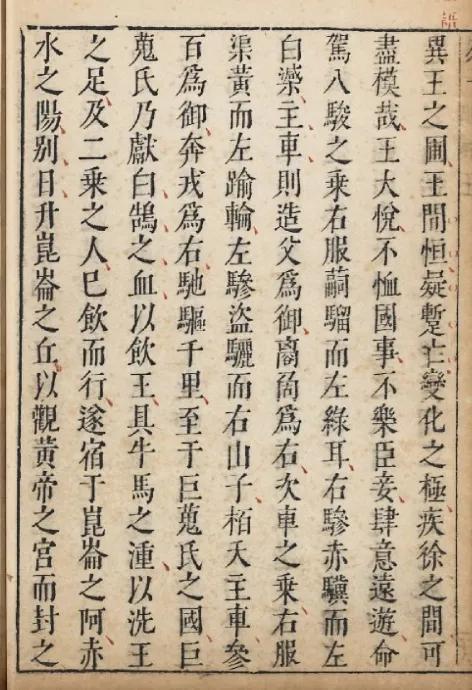 異王之圃王閒恒疑蹔亡變化之極疾徐之間可
盡模哉王大悅不恤國事不樂臣妾肆意遠遊命
駕八駿之乘右服騮而左綠耳右驂赤驥而左
白主車則造父爲御爲右次車之乘右服
渠黃而左踰輪左驂盜驪而右山子柏夭主車參
百爲御奔戎爲右馳驅千里至于巨蒐氏之國巨
蒐氏乃獻白鵠之血以飲王具牛馬之湩以洗王
之足及二乘之人巳飲而行遂宿于崑崙之阿赤
水之陽别日升崑崙之丘以觀黃帝之宮而封之